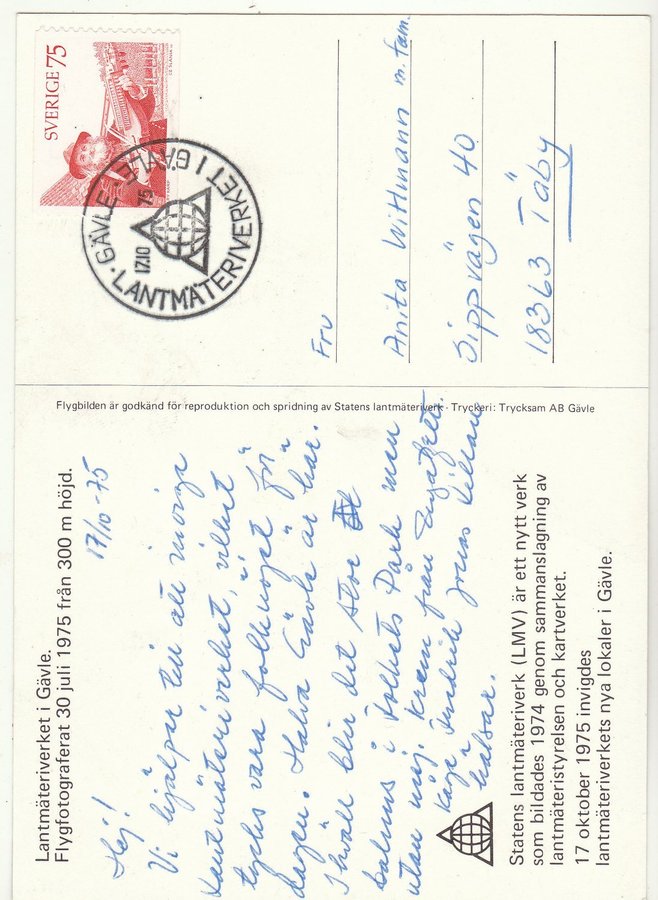 Lantmäteriverket i Gävle.
Flygfotograferat 30 juli 1975 från 300 m höjd.
17/10-75
Hej!
Vi hjälper till att inviga
Lantmäteriverket, vilket
tycks vara folknöjet för
dagen. Halva Gävle är här.
I kväll blir det stor
baluns i Folkets Park men
utan mej. Kram från
Kaja Fredrik Jonas
hälsar.
Statens lantmäteriverk (LMV) är ett nytt verk
som bildades 1974 genom sammanslagning av
lantmäteristyrelsen och kartverket.
17 oktober 1975 invigdes
lantmäteriverkets nya lokaler i Gävle.
Flygbilden är godkänd för reproduktion och spridning av Statens lantmäteriverk · Tryckeri: Trycksam AB Gävle
SVERIGE 75
GÄVLE · LANTMÄTERIVERKET I GÄVLE
17.10 75
Fru
Anita Wittmann m. fam.
Sippvägen 40
18363 Täby